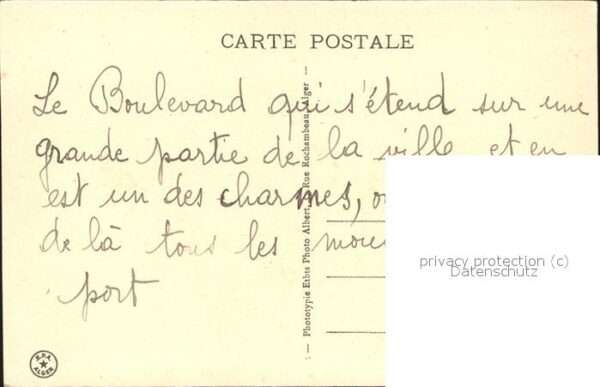 CARTE POSTALE
Le Boulevard qui s'étend sur une
grande partie de la ville et en
est un des charmes,
de là tous les
port
— Phototypie Ethts Photo Albert, Rue Rochambeau, Alger —
privacy protection (c)
Datenschutz
E.P.A.
ALGER